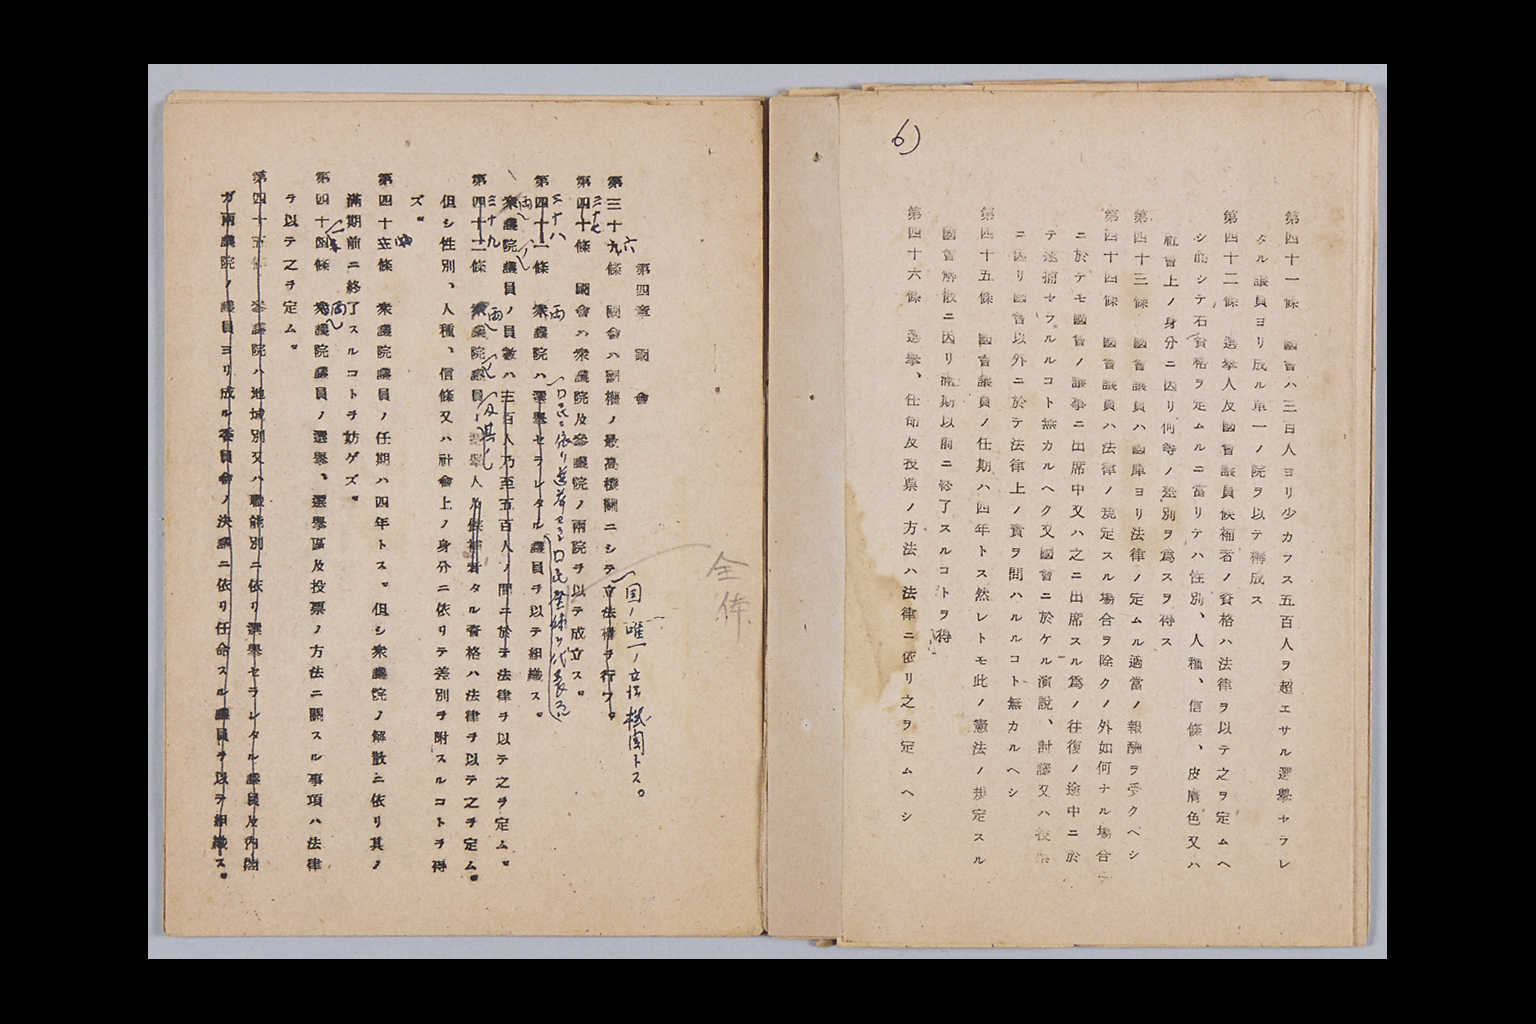 6)
第四十一條 國會ハ三百人ヨリ少カラス五百人ヲ超エサル選擧セラレ
タル議員ヨリ成ル單一ノ院ヲ以テ構成ス
第四十二條 選挙人及國會議員候補者ノ資格ハ法律ヲ以テ之ヲ定ムヘ
シ而シテ右資格ヲ定ムルニ當リテハ性別、人種、信條、皮膚色又ハ
社會上ノ身分ニ因リ何等ノ差別ヲ爲スヲ得ス
第四十三條 國會議員ハ國庫ヨリ法律ノ定ムル適當ノ報酬ヲ受クヘシ
第四十四條 國會議員ハ法律ノ規定スル場合ヲ除クノ外如何ナル場合
ニ於テモ國會ノ議事ニ出席中又ハ之ニ出席スル爲ノ往復ノ途中ニ於
テ逮捕セラルルコト無カルヘク又國會ニ於ケル演說、討論又ハ投票
ニ因リ國會以外ニ於テ法律上ノ責ヲ問ハルルコト無カルヘシ
第四十五條 國會議員ノ任期ハ四年トス然レトモ此ノ憲法ノ規定スル
國會解散ニ因リ滿期以前ニ終了スルコトヲ得
第四十六條 選挙、任命及投票ノ方法ハ法律ニ依リ之ヲ定ムヘシ
全体
第四章 國會
國ノ唯一ノ立法機関トス。
六
第三十九條 國會ハ國權ノ最高機關ニシテ立法權ヲ行フ。
三十七
第四十條 國會ハ衆議院及參議院ノ兩院ヲ以テ成立ス。
三十八
第四十一條 衆議院ハ選擧セラレタル議員ヲ以テ組織ス。
両
衆議院議員ノ員數ハ三百人乃至五百人ノ間ニ於テ法律ヲ以テ之ヲ定ム。
三十九
第四十二條 衆議院議員ノ選擧人及候補者タル資格ハ法律ヲ以テ之ヲ定ム。
両
及其
但シ性別、人種、信條又ハ社會上ノ身分ニ依リテ差別ヲ附スルコトヲ得
ズ。
第四十三條 衆議院議員ノ任期ハ四年トス。但シ衆議院ノ解散ニ依リ其ノ
滿期前ニ終了スルコトヲ妨ゲズ。
第四十四條 衆議院議員ノ選擧、選擧區及投票ノ方法ニ關スル事項ハ法律
両
ヲ以テ之ヲ定ム。
第四十五條 參議院ハ地域別又ハ職能別ニ依リ選擧セラレタル議員及內閣
ガ兩議院ノ議員ヨリ成ル委員會ノ決議ニ依リ任命スル議員ヲ以テ組織ス。